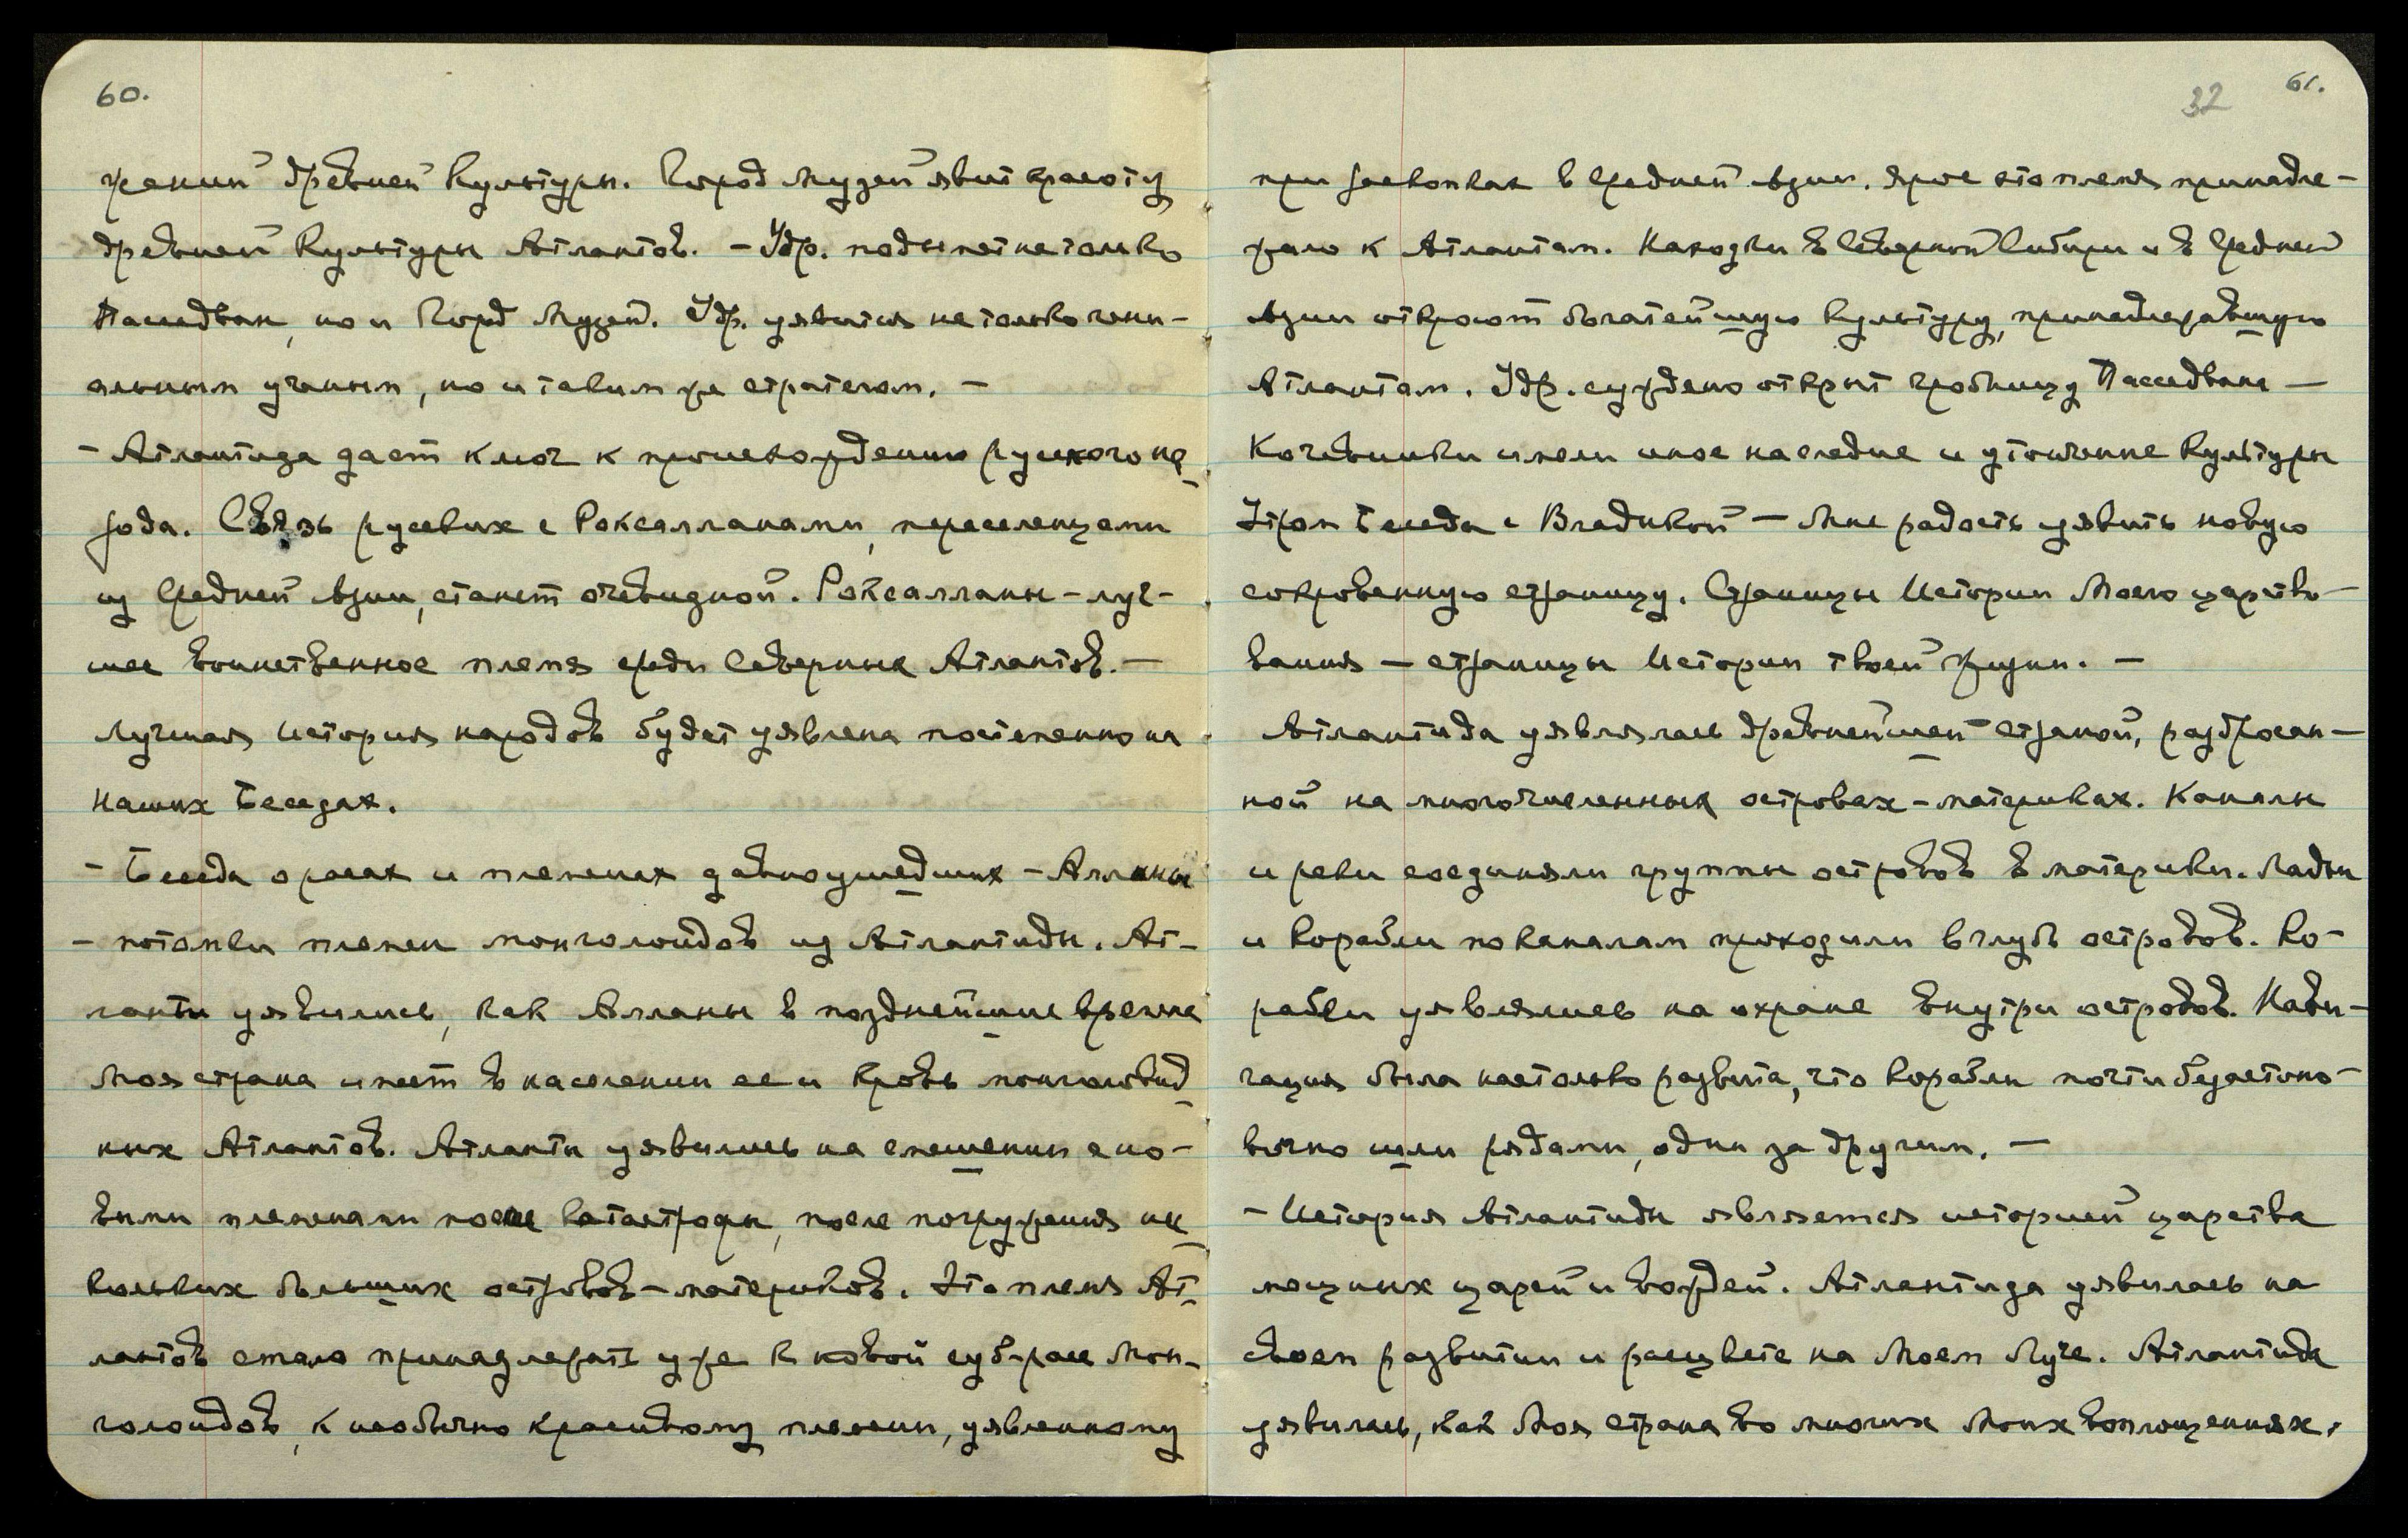 60.
жений древней Культуры. Город Музей явит красоту
древней Культуры Атлантов. — Удр. подымет не только
Пасседван, но и Город Музей. Удр. уявится не только гени-
альным ученым, но и таким же стратегом. —
- Атлантида дает ключ к происхождению русского на-
рода. Связь русских с Роксалланами, переселенцами
из Средней Азии, станет очевидной. Роксалланы - луч-
шее воинственное племя среди Северных Атлантов. —
Лучшая история народов будет уявлена постепенно на
наших Беседах.
- Беседа о расах и племенах давноушедших - Алланы
- потомки племен монголоидов из Атлантиды. Ат-
ланты уявились, как Алланы в позднейшие времена
Моя страна имеет в населении ее и кровь монголовид-
ных Атлантов. Атланты уявились на смешении с но-
выми племенами после катастрофы, после погружения не-
скольких больших островов-материков. Это племя Ат-
лантов стало принадлежать уже к новой суб-расе Мон-
голоидов, к необычно красивому племени, уявленному
32
61.
при раскопках в Средней Азии. Ярое это племя принадле-
жало к Атлантам. Находки в Северной Сибири и в Средней
Азии откроют богатейшую Культуру, принадлежавшую
Атлантам. Удр. суждено открыт гробницу Пасседвана —
Кочевники имели иное наследие и утончение Культуры
Утром Беседа с Владыкой — Мне радость уявить новую
сокровенную страницу. Страницы Истории Моего царство-
вания — страницы Истории твоей жизни. —
Атлантида уявлялась древнейшей страной, разбросан-
ной на многочисленных островах-материках. Каналы
и реки соединяли группы островов в материки. Ладьи
и корабли по каналам проходили вглубь островов. Ко-
рабли уявлялись на охране внутри островов. Нави-
гация была настолько развита, что корабли почти безостано-
вочно шли рядами, один за другим. —
- История Атлантиды является историей царства
мощных царей и вождей. Атлантида уявилась на
своем развитии и расцвете на Моем Луче. Атлантида
уявилась, как Моя страна во многих Моих воплощениях.